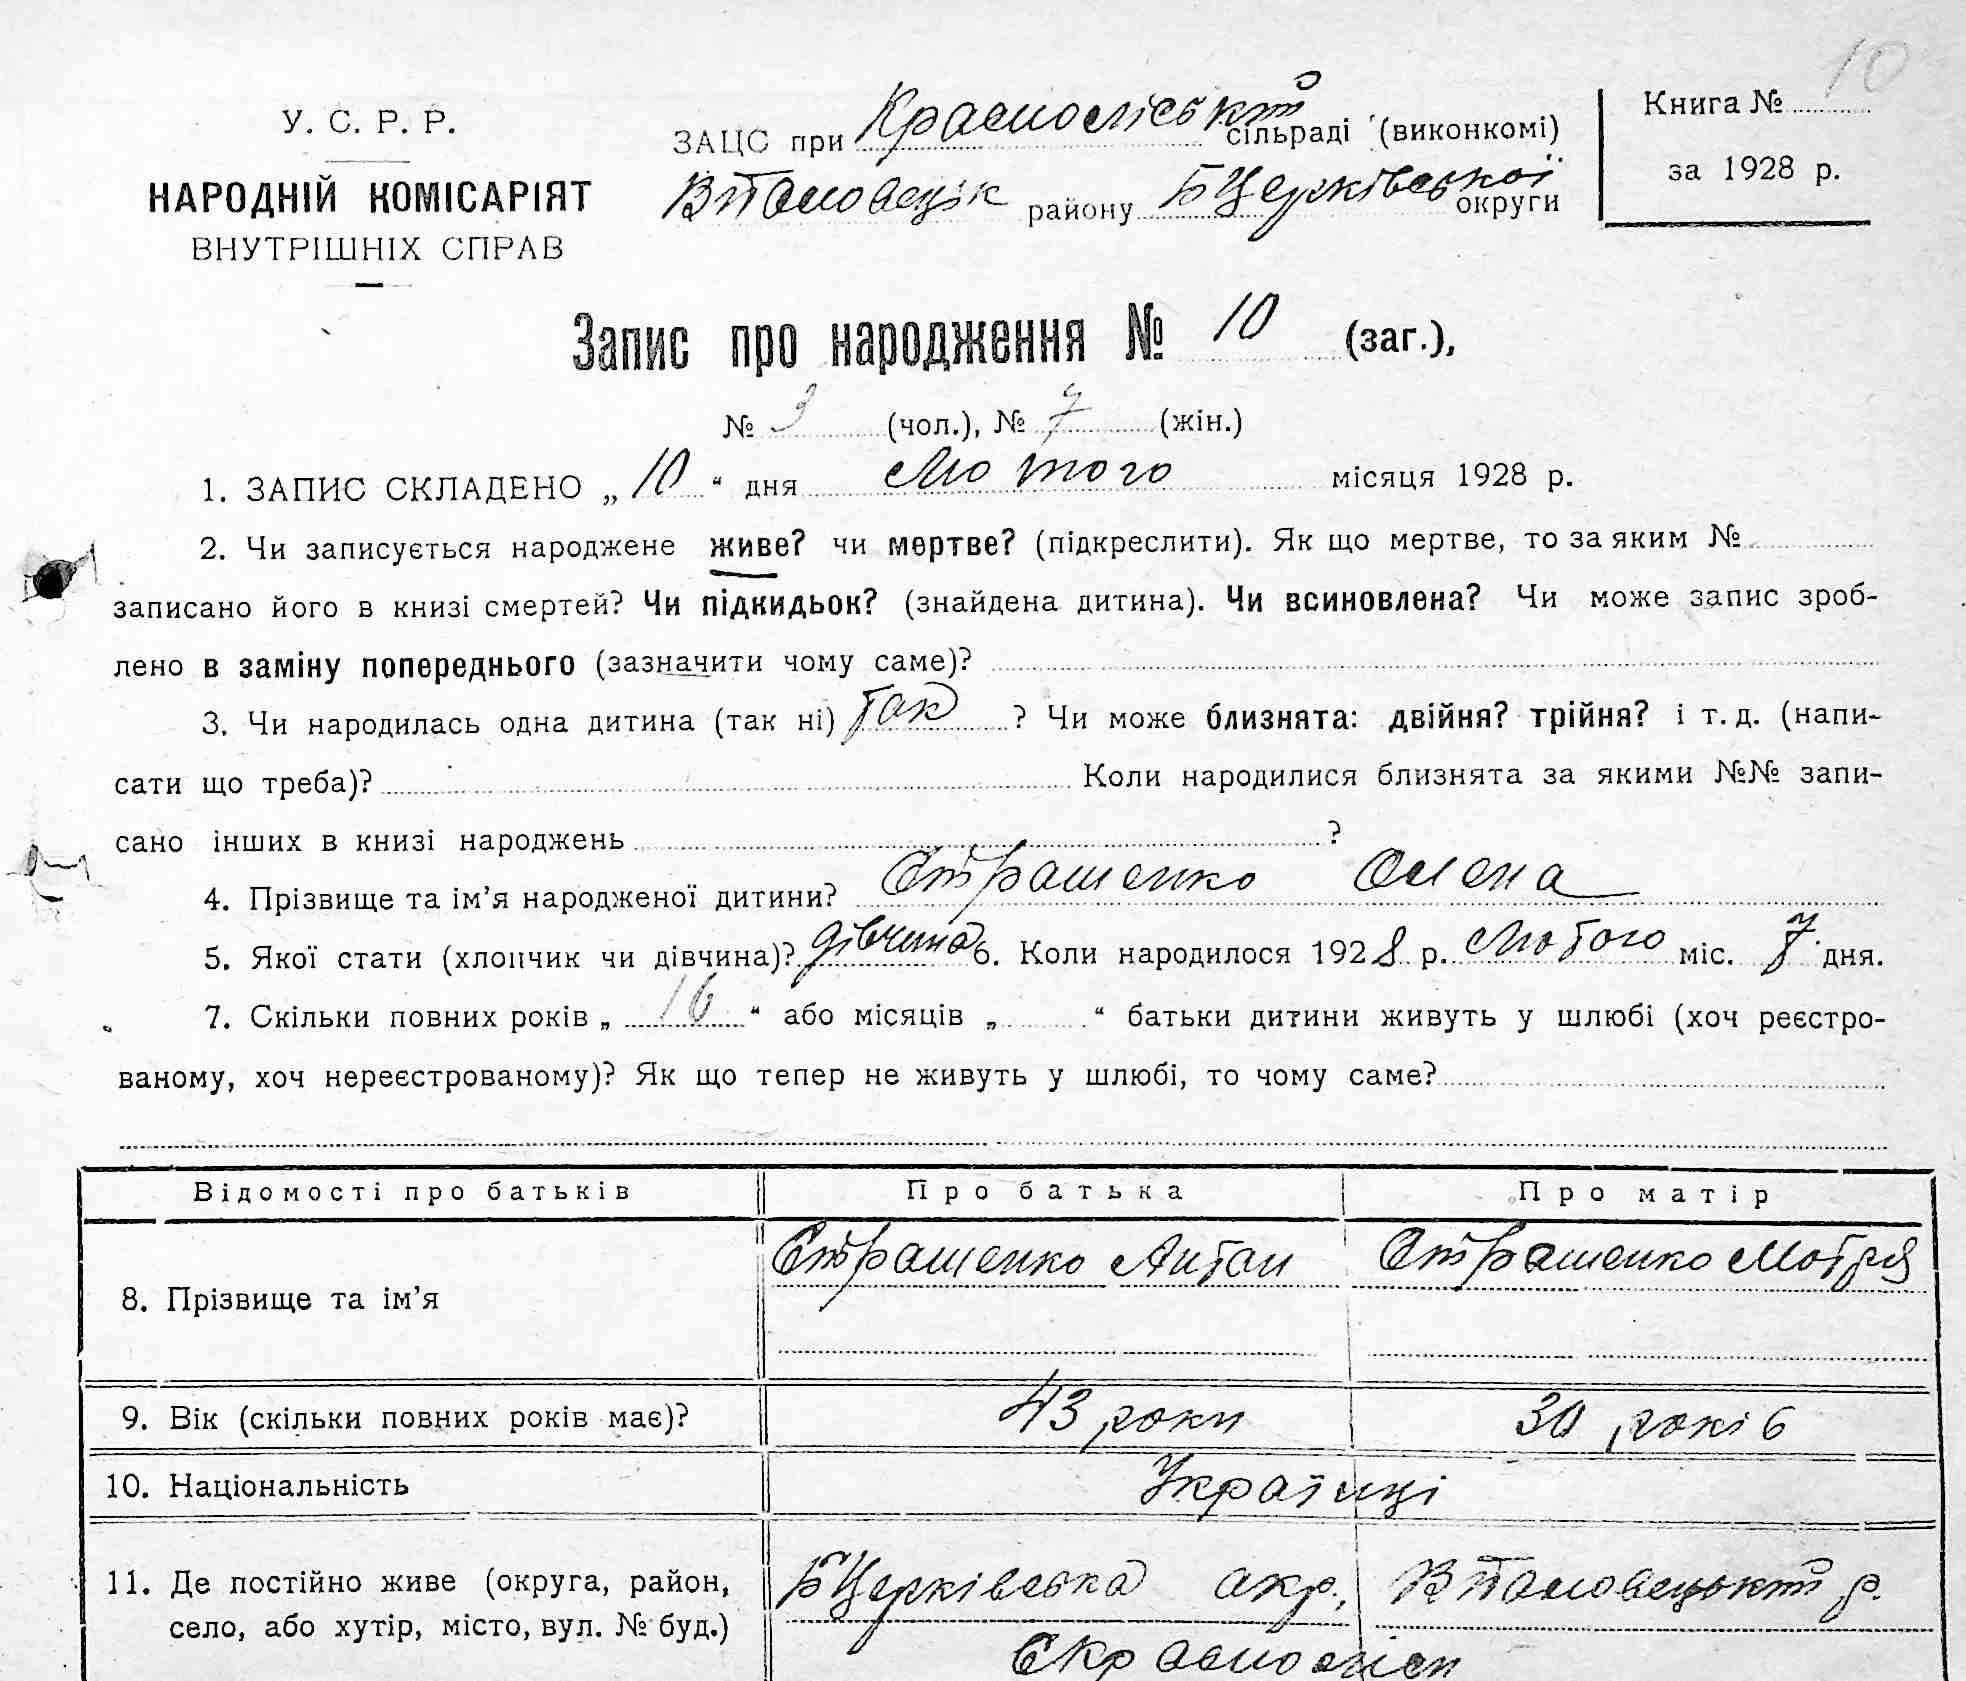 10
У. С. Р. Р.
НАРОДНІЙ КОМІСАРІЯТ
ВНУТРІШНІХ СПРАВ
ЗАЦС при Красноліській сільраді (виконкомі)
району Б Церківської округи
Книга №
за 1928 р.
Запис про народження № 10 (заг.),
№ 3 (чол.), № 7 (жін.)
1. ЗАПИС СКЛАДЕНО „ 10 “ дня Лютого місяця 1928 р.
2. Чи записується народжене живе? чи мертве? (підкреслити). Як що мертве, то за яким №
записано його в книзі смертей? Чи підкидьок? (знайдена дитина). Чи всиновлена? Чи може запис зроб-
лено в заміну попереднього (зазначити чому саме)?
3. Чи народилась одна дитина (так ні) так ? Чи може близнята: двійня? трійня? і т. д. (напи-
сати що треба)? Коли народилися близнята за якими №№ запи-
сано інших в книзі народжень ?
4. Прізвище та ім’я народженої дитини? Страшенко Олена
5. Якої стати (хлопчик чи дівчина)? дівчина 6. Коли народилося 1928 р. Лютого міс. 7 дня.
7. Скільки повних років „ 16 “ або місяців „ “ батьки дитини живуть у шлюбі (хоч реєстро-
ваному, хоч нереєстрованому)? Як що тепер не живуть у шлюбі, то чому саме?
Відомості про батьків Про батька Про матір
8. Прізвище та ім’я Страшенко Антон Страшенко Мотря
9. Вік (скільки повних років має)? 43 роки 30 років
10. Національність Українці
11. Де постійно живе (округа, район, Б Церківська окр., р.
село, або хутір, місто, вул. № буд.)